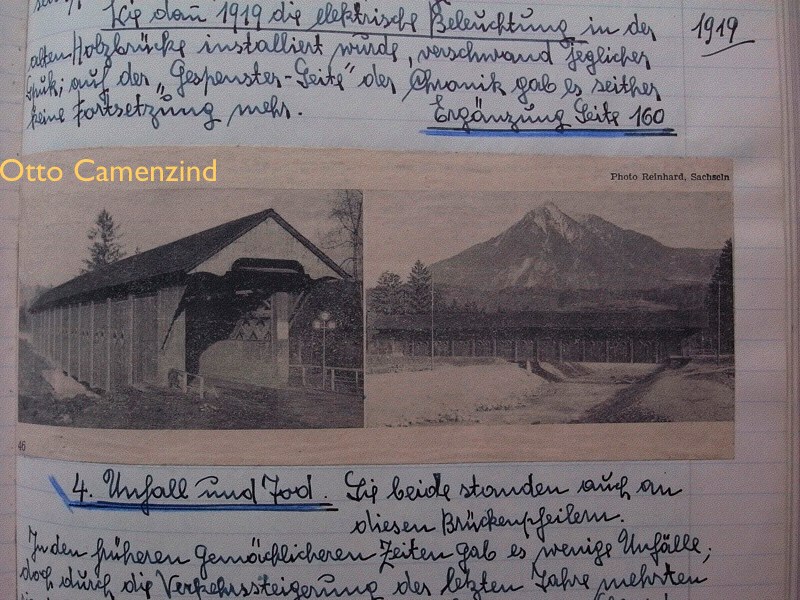 Wie dau 1919 die elektrische Beleuchtung in der
alten Holzbrücke installiert wurde, verschwand jeglicher
Spuk; auf der „Gespenster-Seite" der Chronik gab es seither
keine Fortsetzung mehr. Ergänzung Seite 160
1919
Otto Camenzind
Photo Reinhard, Sachseln
46
4. Unfall und Tod. Sie beide standen auch an
diesen Brückenpfeilern.
In den früheren gemächlicheren Zeiten gab es wenige Unfälle;
doch durch die Verkehrssteigerung der letzten Jahre mehrten